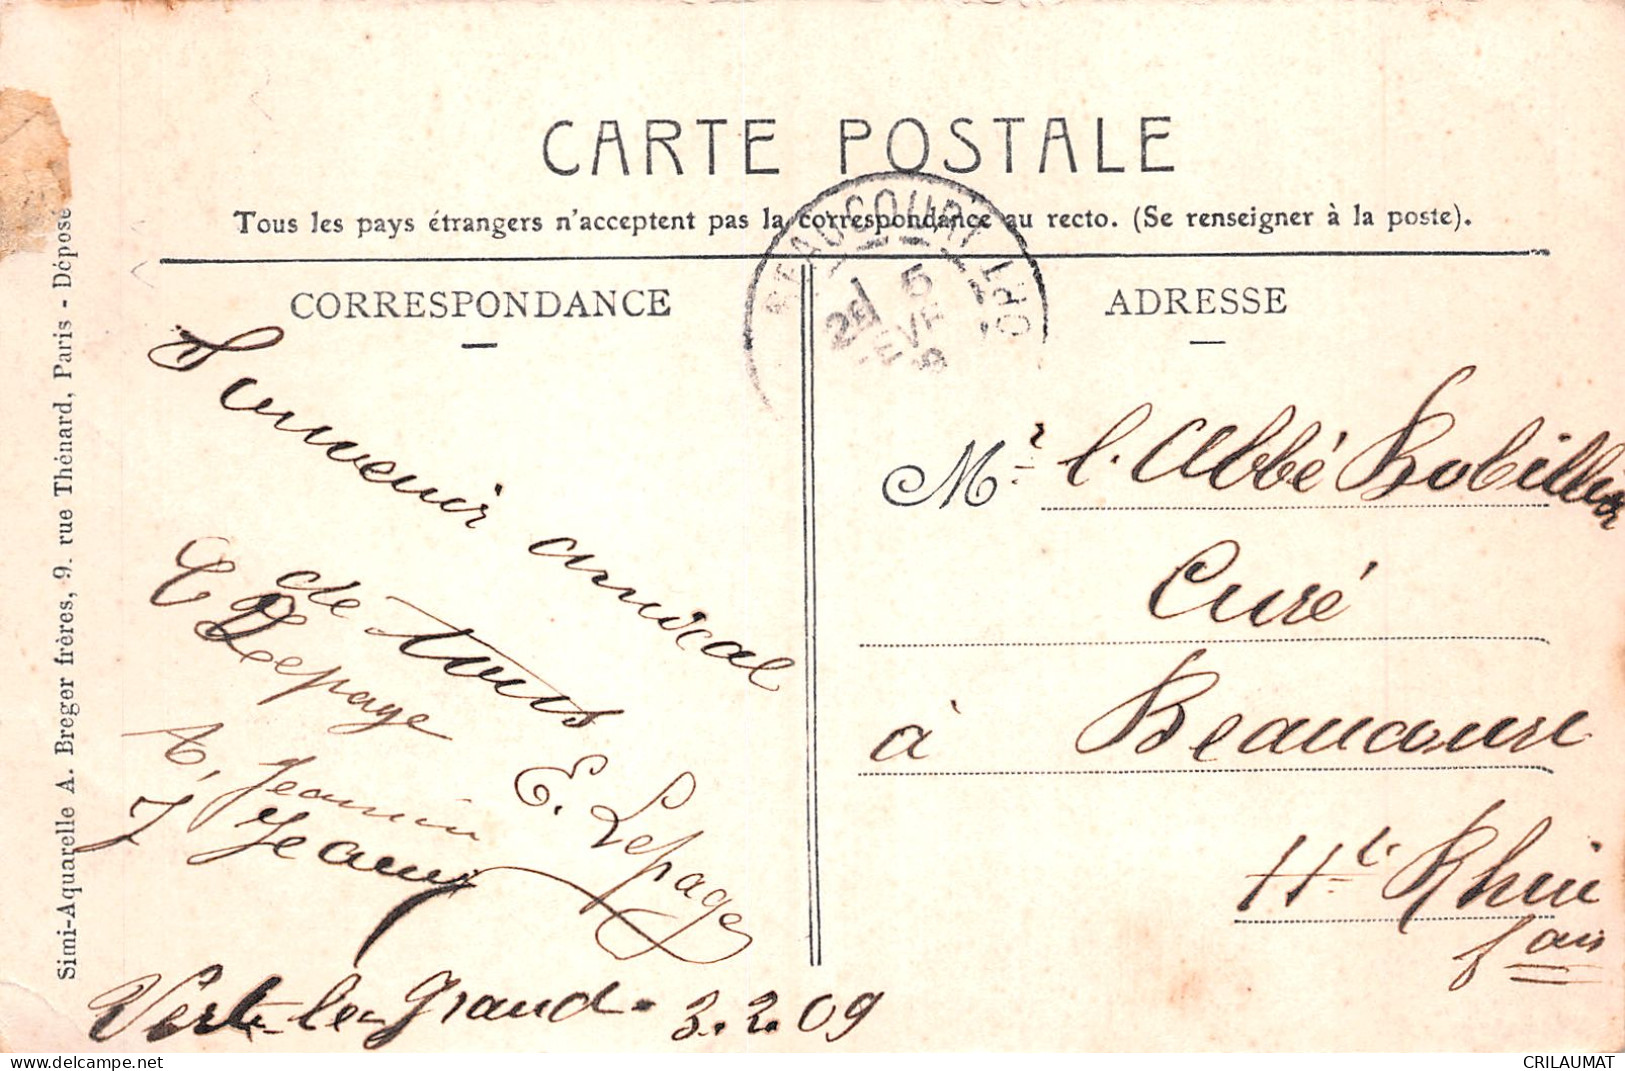 CARTE POSTALE
Tous les pays étrangers n'acceptent pas la correspondance au recto. (Se renseigner à la poste).
CORRESPONDANCE
Souvenir amical
de tous
C Lepage
A. Jeannin
E. Lepage
J Jeanny
Vert-le-Grand. 3.2.09
ADRESSE
Mr l'Abbé Robillier
Curé
à Beaucourt
Ht Rhin
fais
BEAUCOURT
5
Simi-Aquarelle A. Breger frères, 9. rue Thénard, Paris - Déposé
delcampe.net
CRILAUMAT